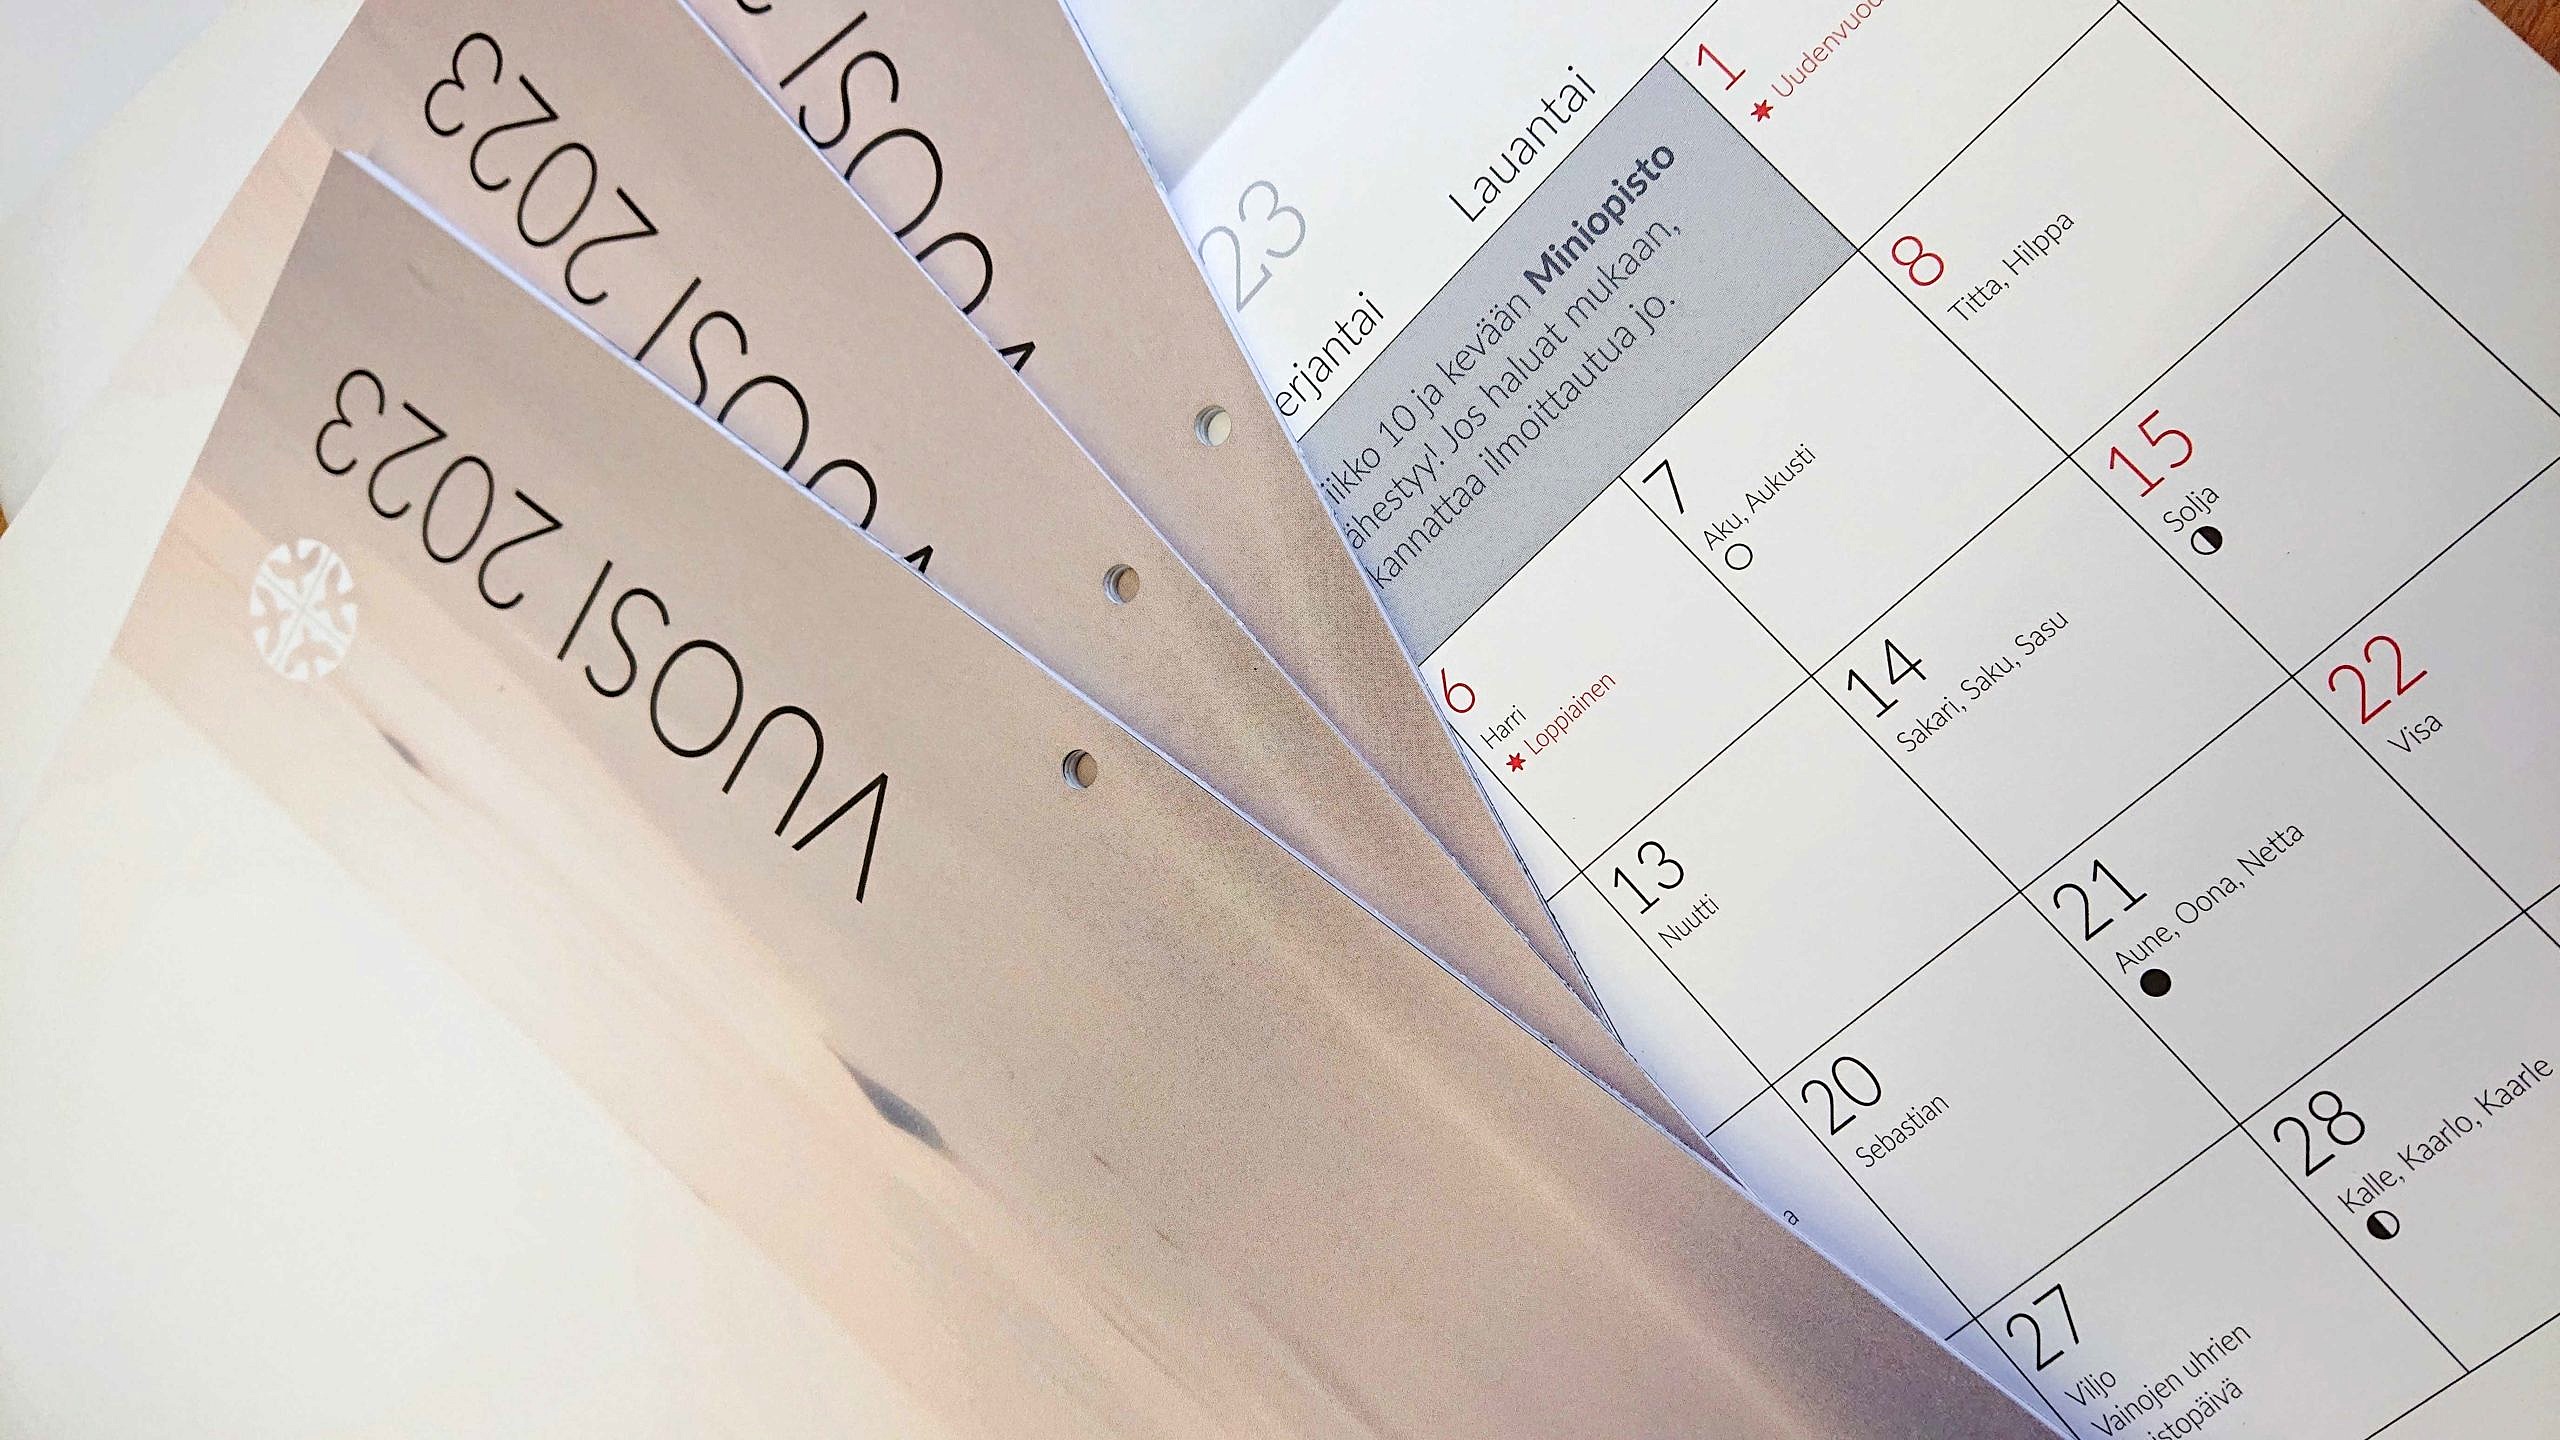 VUOSI 2023
VUOSI 2023
VUOSI 2
23
erjantai
Lauantai
iikko 10 ja kevään Miniopisto
ähestyy! Jos haluat mukaan,
kannattaa ilmoittautua jo.
1
Uudenvuod
6
Harri
Loppiainen
7
Aku, Aukusti
8
Titta, Hilppa
13
Nuutti
14
Sakari, Saku, Sasu
15
Solja
20
Sebastian
21
Aune, Oona, Netta
22
Visa
a
27
Viljo
Vainojen uhrien
istopäivä
28
Kalle, Kaarlo, Kaarle